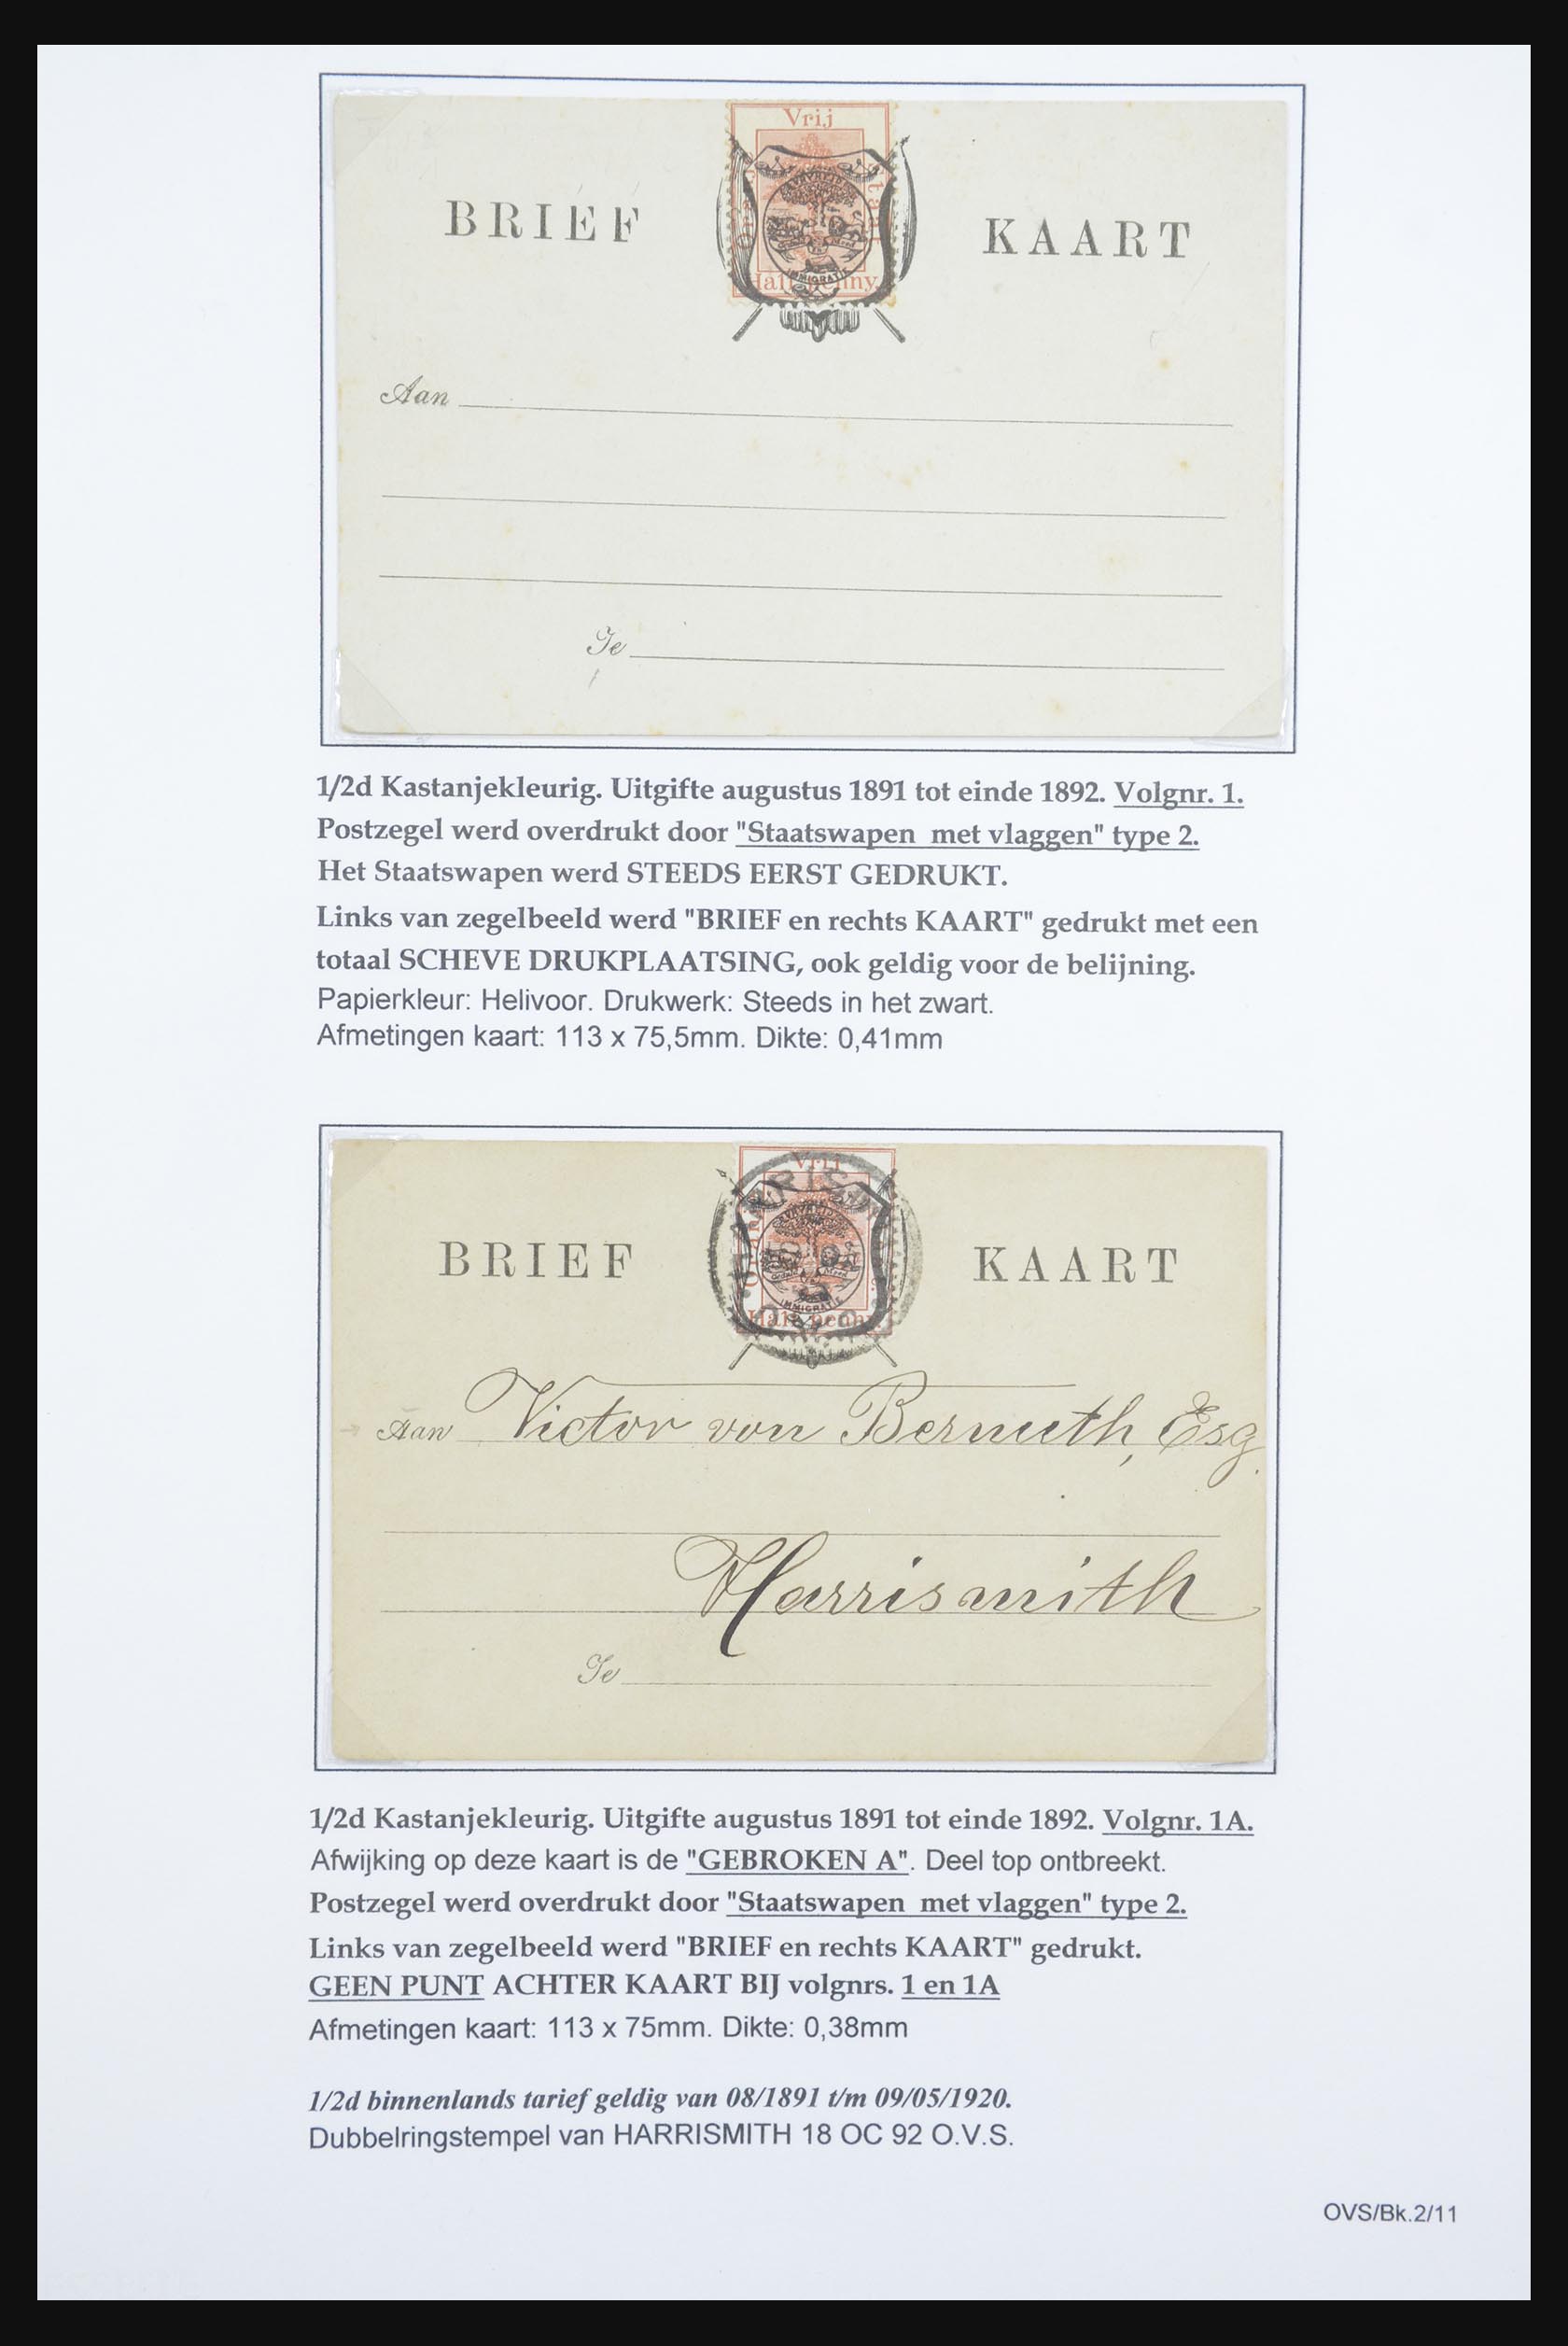 Vrij
Staat
Half penny.
IMMIGRATIE
BRIEF KAART
Aan
Te
1/2d Kastanjekleurig. Uitgifte augustus 1891 tot einde 1892. Volgnr. 1.
Postzegel werd overdrukt door "Staatswapen met vlaggen" type 2.
Het Staatswapen werd STEEDS EERST GEDRUKT.
Links van zegelbeeld werd "BRIEF en rechts KAART" gedrukt met een
totaal SCHEVE DRUKPLAATSING, ook geldig voor de belijning.
Papierkleur: Helivoor. Drukwerk: Steeds in het zwart.
Afmetingen kaart: 113 x 75,5mm. Dikte: 0,41mm
Vrij
Half penny.
IMMIGRATIE
BRIEF KAART
Aan Victor von Bernuth, Esq.
Harrismith
Te
1/2d Kastanjekleurig. Uitgifte augustus 1891 tot einde 1892. Volgnr. 1A.
Afwijking op deze kaart is de "GEBROKEN A". Deel top ontbreekt.
Postzegel werd overdrukt door "Staatswapen met vlaggen" type 2.
Links van zegelbeeld werd "BRIEF en rechts KAART" gedrukt.
GEEN PUNT ACHTER KAART BIJ volgnrs. 1 en 1A
Afmetingen kaart: 113 x 75mm. Dikte: 0,38mm
1/2d binnenlands tarief geldig van 08/1891 t/m 09/05/1920.
Dubbelringstempel van HARRISMITH 18 OC 92 O.V.S.
OVS/Bk.2/11